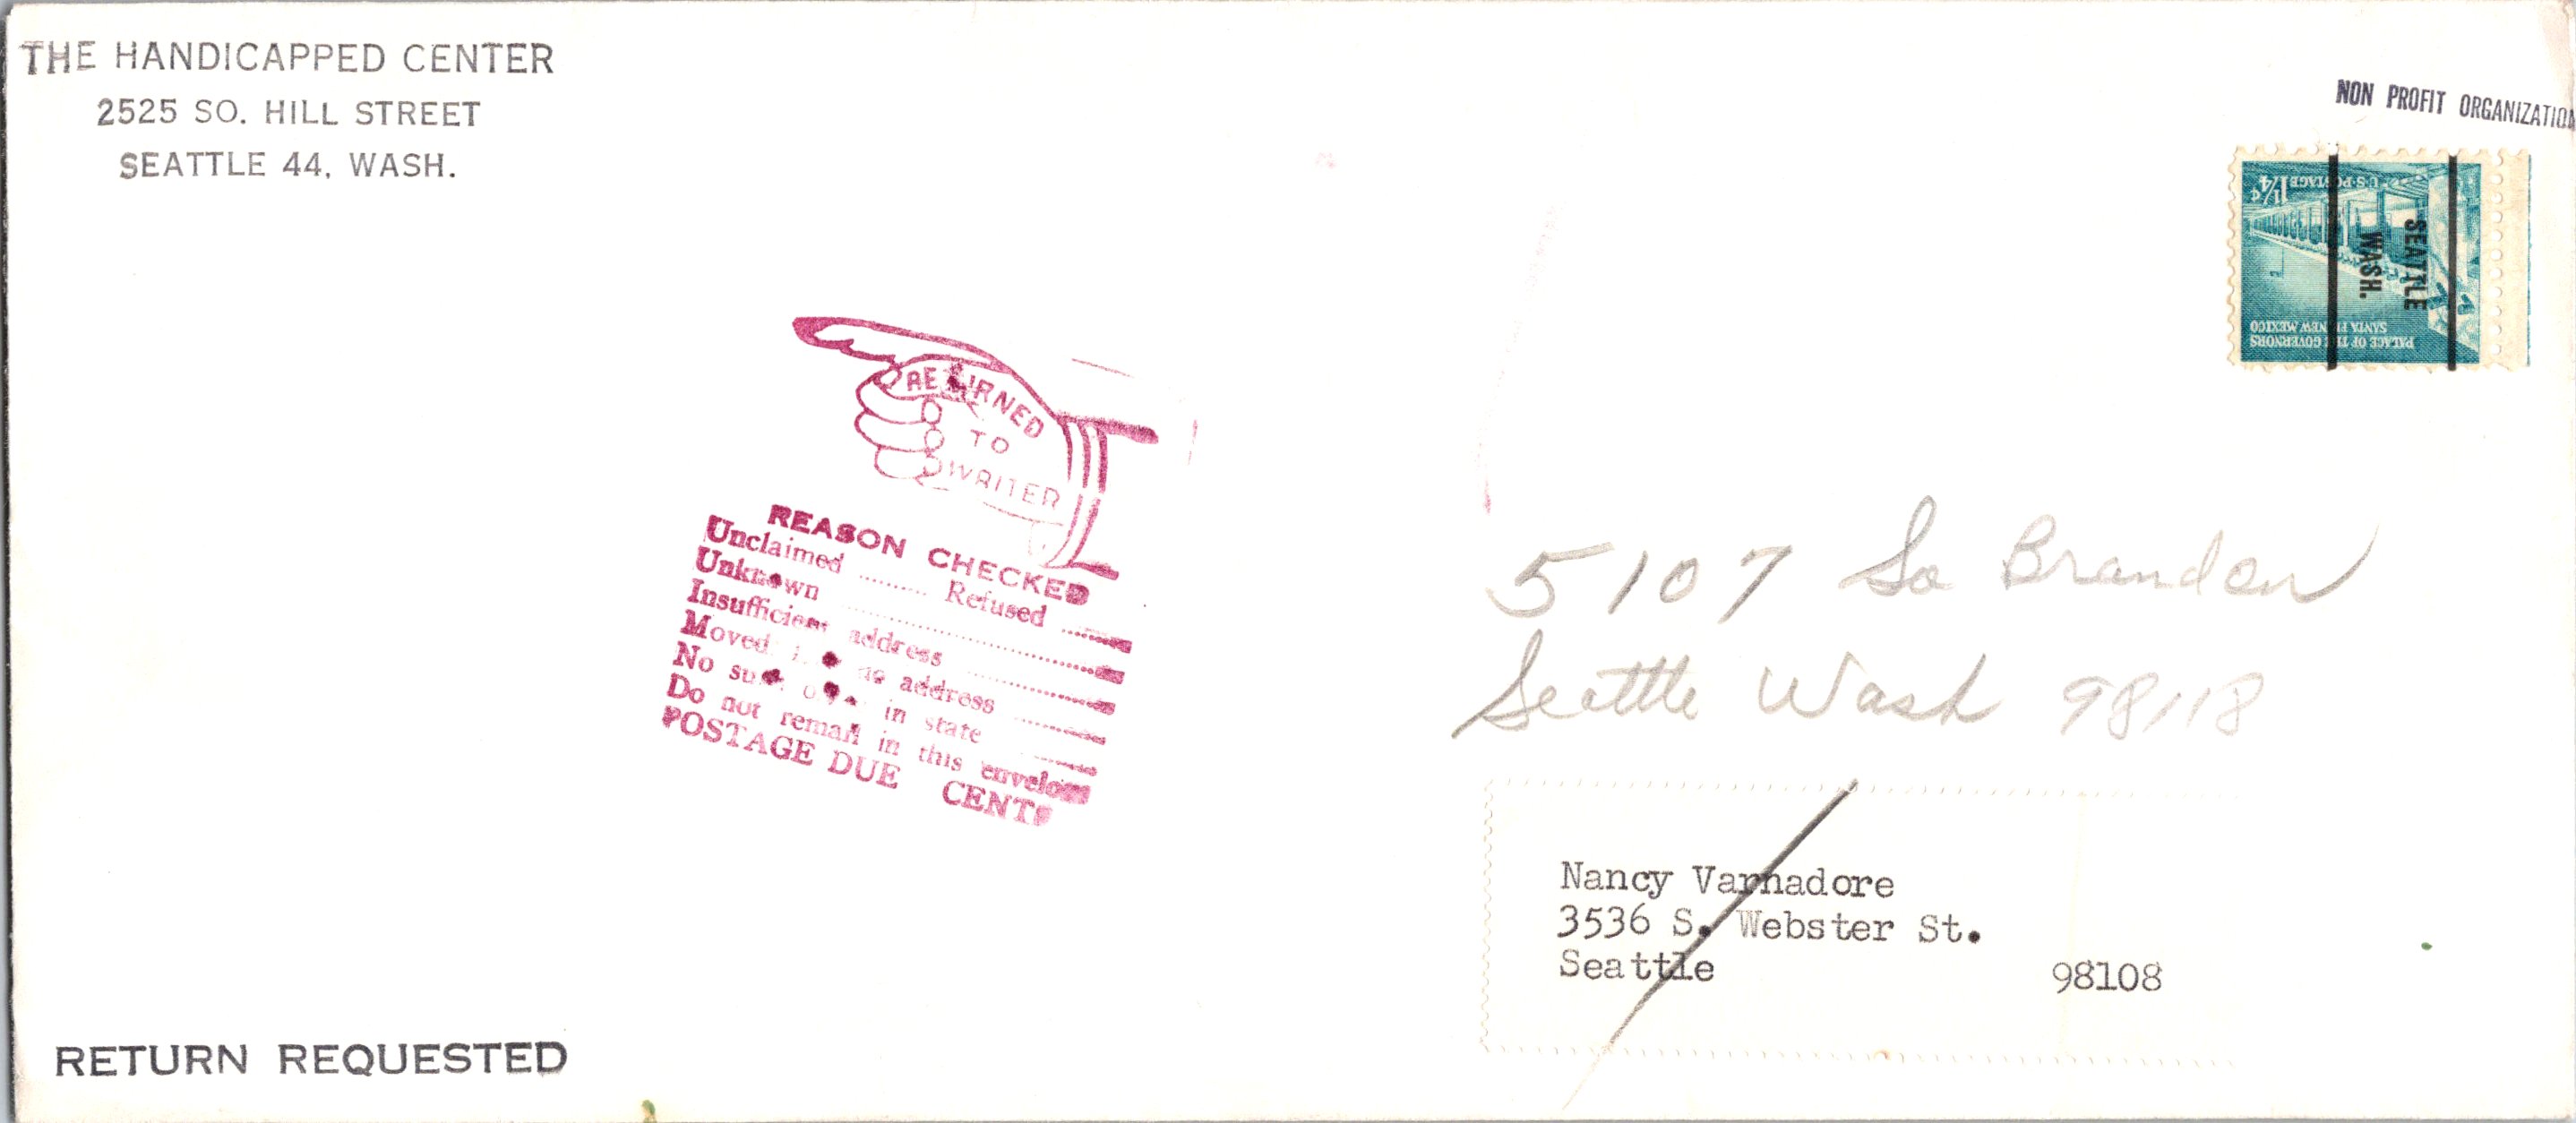 THE HANDICAPPED CENTER
2525 SO. HILL STREET
SEATTLE 44, WASH.
NON PROFIT ORGANIZATION
1¼¢ U.S. POSTAGE
SEATTLE
WASH.
PALACE OF THE GOVERNORS
SANTA FE, NEW MEXICO
RETURNED
TO
WRITER
REASON CHECKED
Unclaimed ........ Refused ........
Unknown ........
Insufficient address ........
Moved, no address ........
No such in state ........
Do not remail in this envelope
POSTAGE DUE CENTS
5107 So Brandon
Seattle Wash 98118
Nancy Varnadore
3536 S. Webster St.
Seattle 98108
RETURN REQUESTED